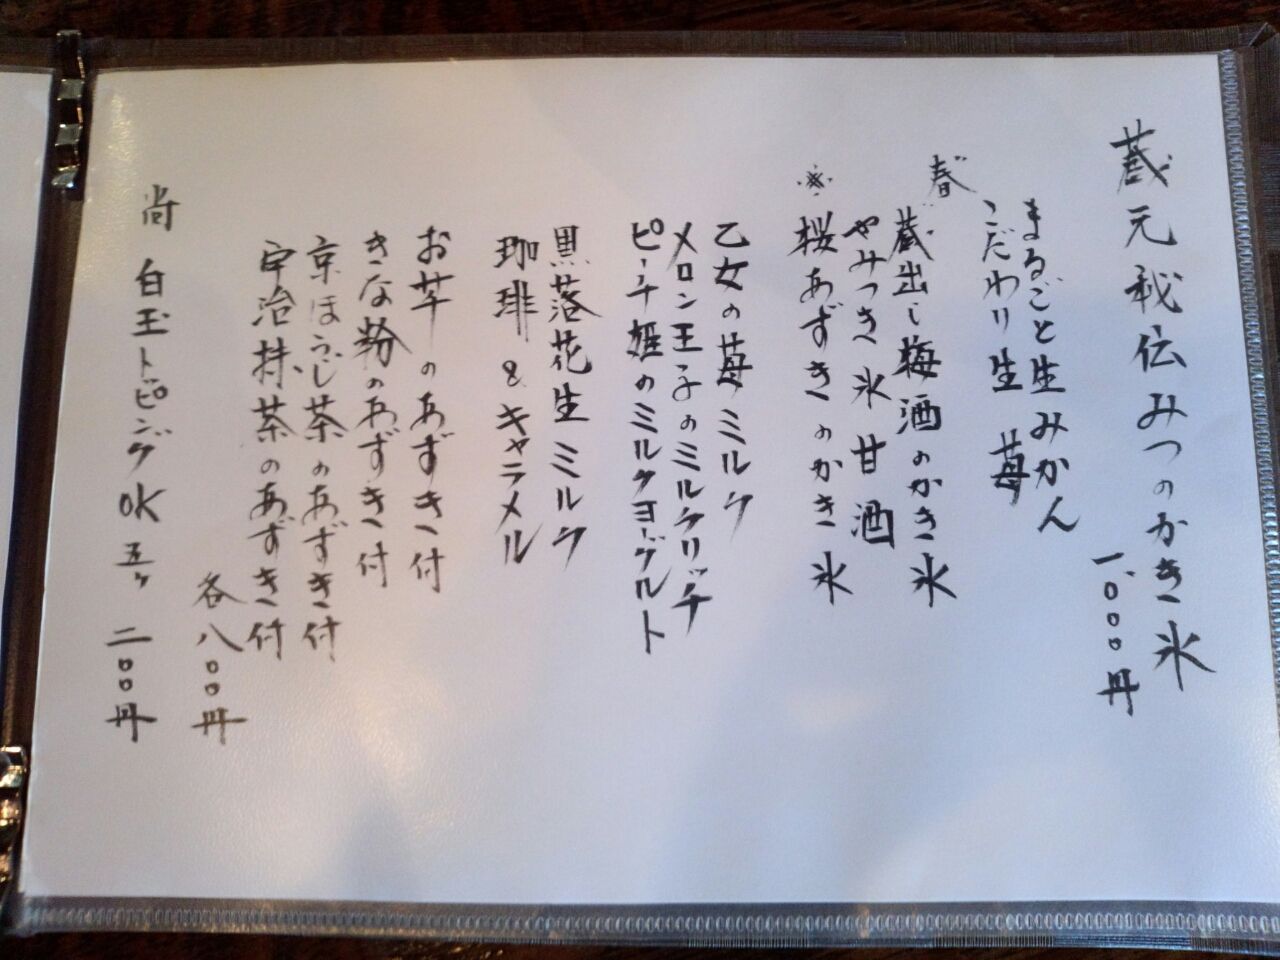 蔵元秘伝みつのかき氷
一、〇〇〇円
まるごと生みかん
こだわり生苺
春
蔵出し梅酒のかき氷
やみつき氷甘酒
※桜あずきのかき氷
乙女の苺ミルク
メロン王子のミルクリッチ
ピーチ姫のミルクヨーグルト
黒落花生ミルク
珈琲&キャラメル
お芋のあずき付
きな粉のあずき付
京ほうじ茶のあずき付
宇治抹茶のあずき付
各八〇〇円
尚 白玉トッピングOK 五ヶ 二〇〇円